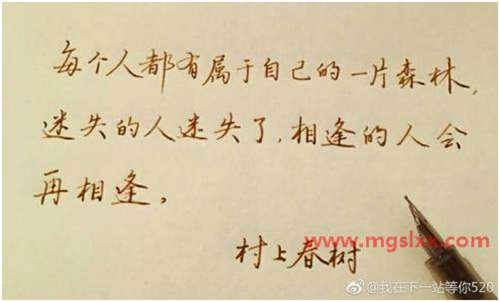 每个人都有属于自己的一片森林，
迷失的人迷失了，相逢的人会
再相逢。
村上春树
www.mgslxx.com
@我在下一站等你520